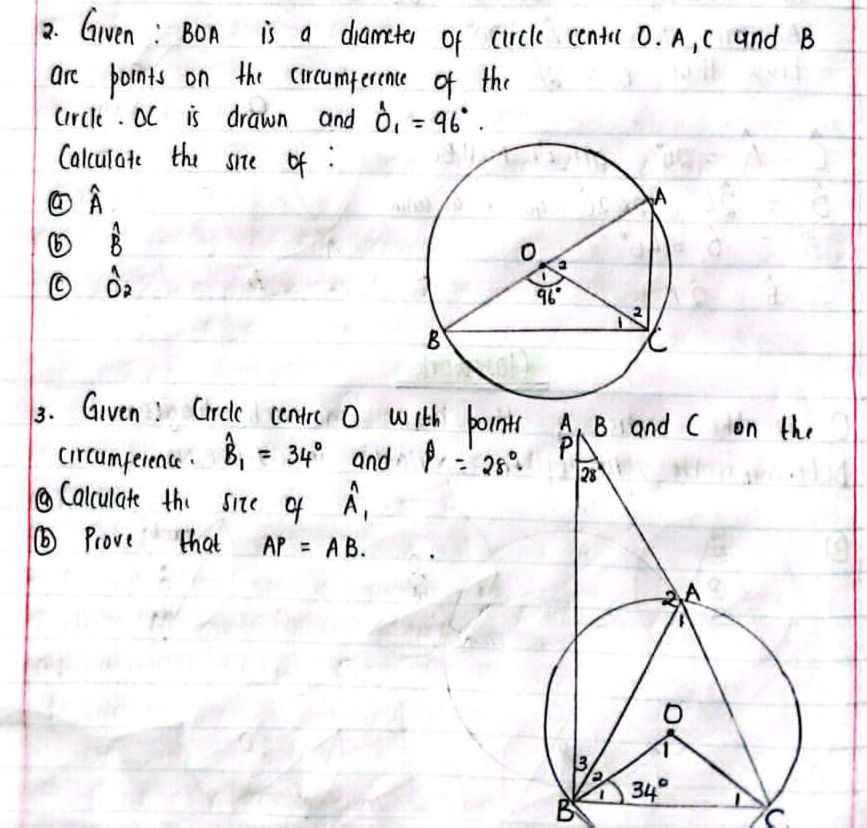 2. Given : BOA is a diameter of circle centre O. A, C and B
are points on the circumference of the
circle. OC is drawn and Ô₁ = 96°.
Calculate the size of :
ⓐ Â
ⓑ B̂
ⓒ Ô₂
A
O
1
2
96°
1
2
B
C
3. Given : Circle centre O with points A, B and C on the
circumference. B̂₁ = 34° and P̂ = 28°.
ⓐ Calculate the size of Â₁
ⓑ Prove that AP = AB.
P
28
2
A
1
O
1
3
2
1
34°
1
B
C